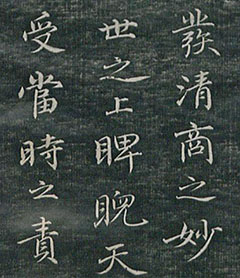 發清商之妙
世之上睥睨天
受當時之責